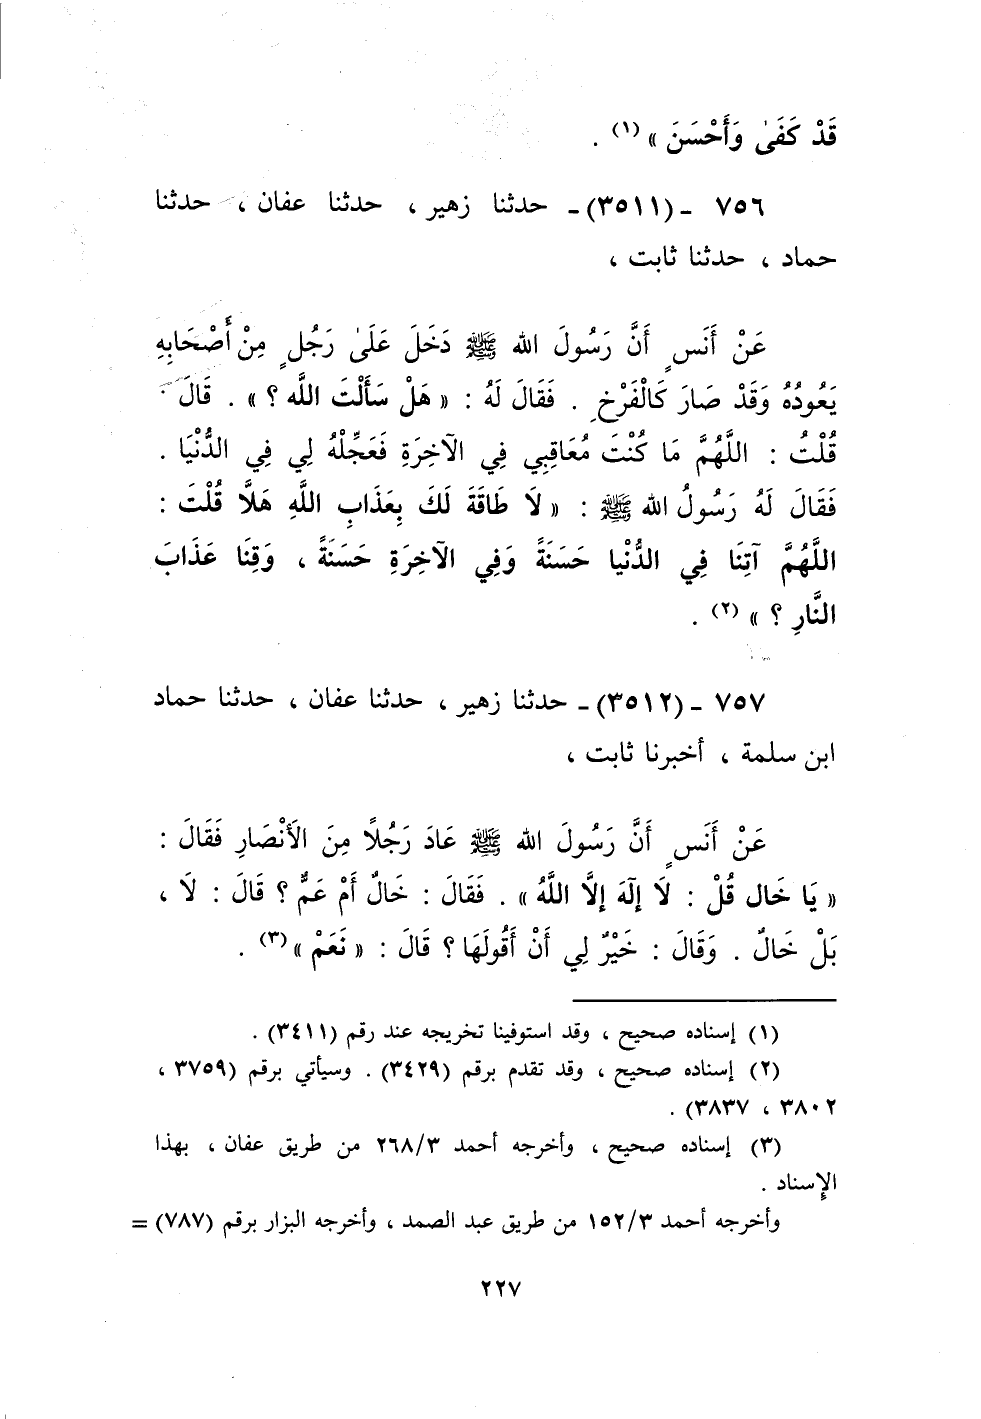 قَدْ كَفَىٰ وَأَحْسَنَ » (١) .
٧٥٦ - (٣٥١١) - حدثنا زهير ، حدثنا عفان ، حدثنا
حماد ، حدثنا ثابت ،
عَنْ أَنَسٍ أَنَّ رَسُولَ الله ﷺ دَخَلَ عَلَىٰ رَجُلٍ مِنْ أَصْحَابِهِ
يَعُودُهُ وَقَدْ صَارَ كَالْفَرْخِ . فَقَالَ لَهُ : « هَلْ سَأَلْتَ اللَّه ؟ » . قَالَ
قُلْتُ : اللَّهُمَّ مَا كُنْتَ مُعَاقِبِي فِي الآخِرَةِ فَعَجِّلْهُ لِي فِي الدُّنْيَا .
فَقَالَ لَهُ رَسُولُ الله ﷺ : « لَا طَاقَةَ لَكَ بِعَذَابِ اللَّهِ هَلَّا قُلْتَ :
اللَّهُمَّ آتِنَا فِي الدُّنْيا حَسَنَةً وَفِي الآخِرَةِ حَسَنَةً ، وَقِنَا عَذَابَ
النَّارِ ؟ » (٢) .
٧٥٧ - (٣٥١٢) - حدثنا زهير ، حدثنا عفان ، حدثنا حماد
ابن سلمة ، أخبرنا ثابت ،
عَنْ أَنَسٍ أَنَّ رَسُولَ الله ﷺ عَادَ رَجُلاً مِنَ الأَنْصَارِ فَقَالَ :
« يَا خَال قُلْ : لَا إلَهَ إلَّا اللَّهُ » . فَقَالَ : خَالٌ أَمْ عَمٌّ ؟ قَالَ : لَا ،
بَلْ خَالٌ . وَقَالَ : خَيْرٌ لِي أَنْ أَقُولَهَا ؟ قَالَ : « نَعَمْ » (٣) .
(١) إسناده صحيح ، وقد استوفينا تخريجه عند رقم (٣٤١١) .
(٢) إسناده صحيح ، وقد تقدم برقم (٣٤٢٩) . وسيأتي برقم (٣٧٥٩ ،
٣٨٠٢ ، ٣٨٣٧) .
(٣) إسناده صحيح ، وأخرجه أحمد ٢٦٨/٣ من طريق عفان ، بهذا
الإسناد .
وأخرجه أحمد ١٥٢/٣ من طريق عبد الصمد ، وأخرجه البزار برقم (٧٨٧) =
٢٢٧